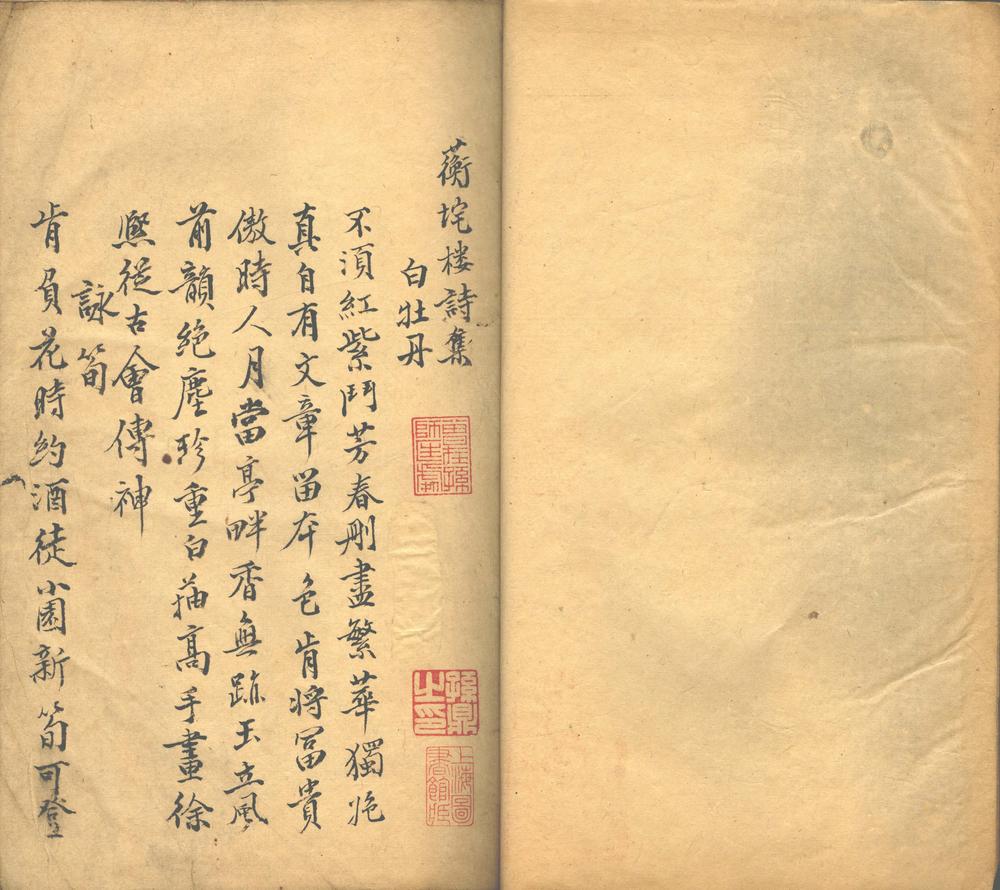 蘅垞楼詩集
白牡丹
不須紅紫鬥芳春刪盡繁華獨抱
真自有文章留本色肯將冨貴
傲時人月當亭畔香無跡玉立風
前韻絶塵珍重白描高手畫徐
熙從古會傳神
詠筍
肯負花時約酒徒小園新筍可登
孫鼎之印
上海圖書館藏